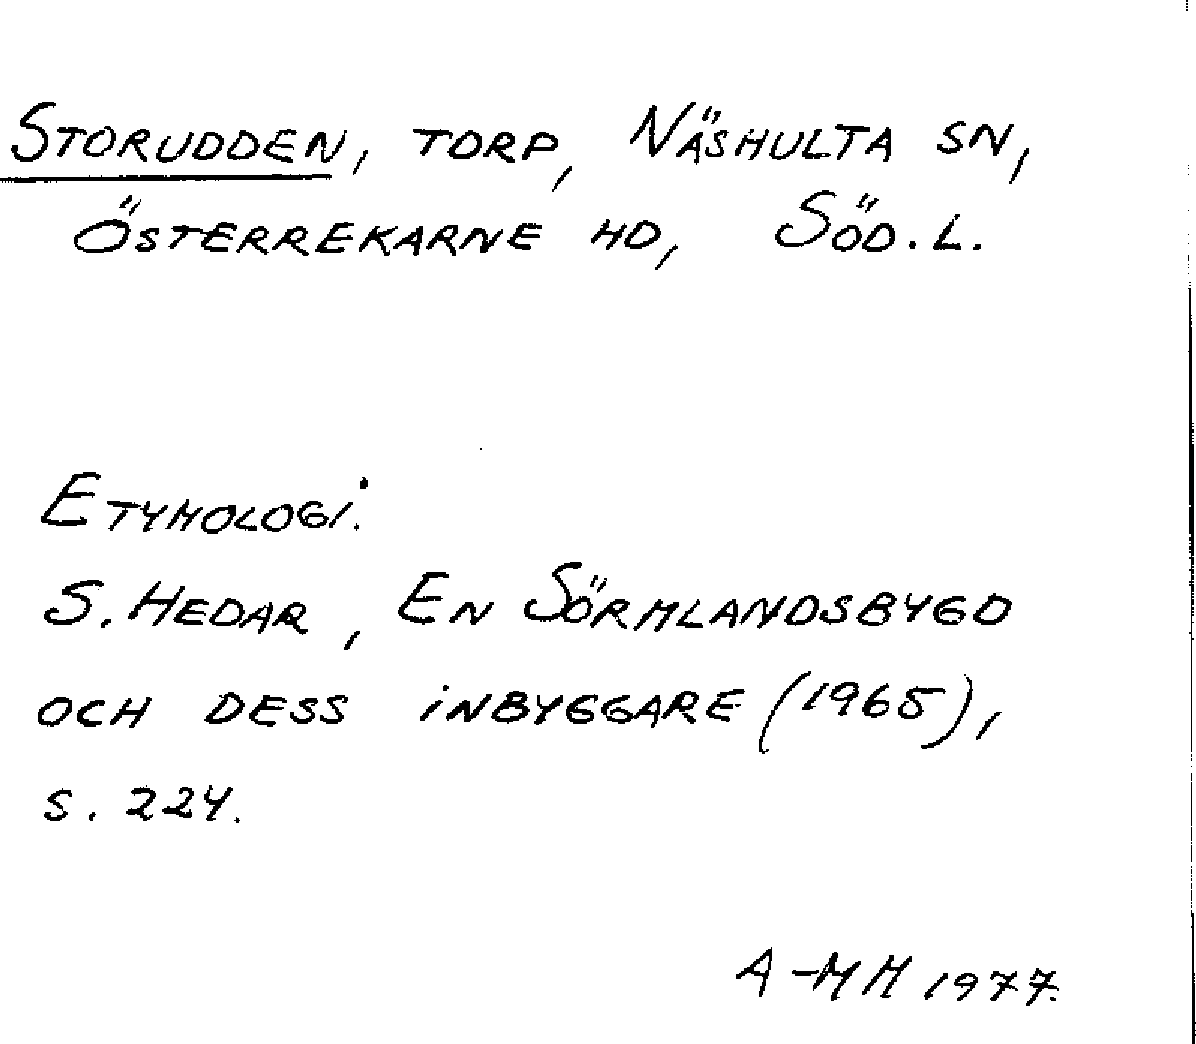 STORUDDEN, TORP, NÄSHULTA SN,
ÖSTERREKARNE HD, SÖD.L.
ETYMOLOGI:
S. HEDAR, EN SÖRMLANDSBYGD
OCH DESS INBYGGARE (1965),
S. 224.
A-MH 1977.